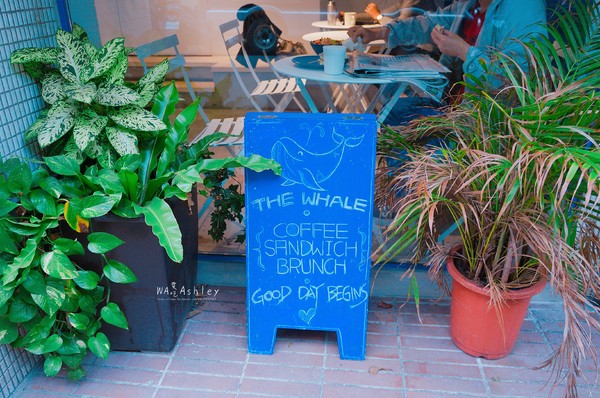 THE WHALE
COFFEE
SANDWICH
BRUNCH
GOOD DAY BEGINS
WA ASHLEY